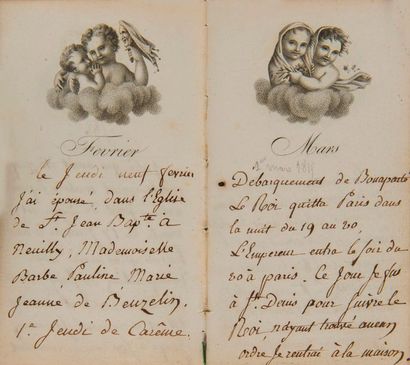 Fevrier
le Jeudi neuf fevrier
j'ai épousé dans l'Eglise
de St. Jean Bapte. à
Neuilly, Mademoiselle
Barbe, Pauline Marie
Jeanne de Beuzelin.
1er Jeudi de Carême.
Mars
1er mars 1815
Debarquement de Bonaparte
Le Roi quitta Paris dans
la nuit du 19 au 20.
L'Empereur entra le soir du
20 à paris. Ce Jour je fus
à St. Denis pour suivre le
Roi n'ayant trouvé aucun
ordre Je rentrai à la maison.